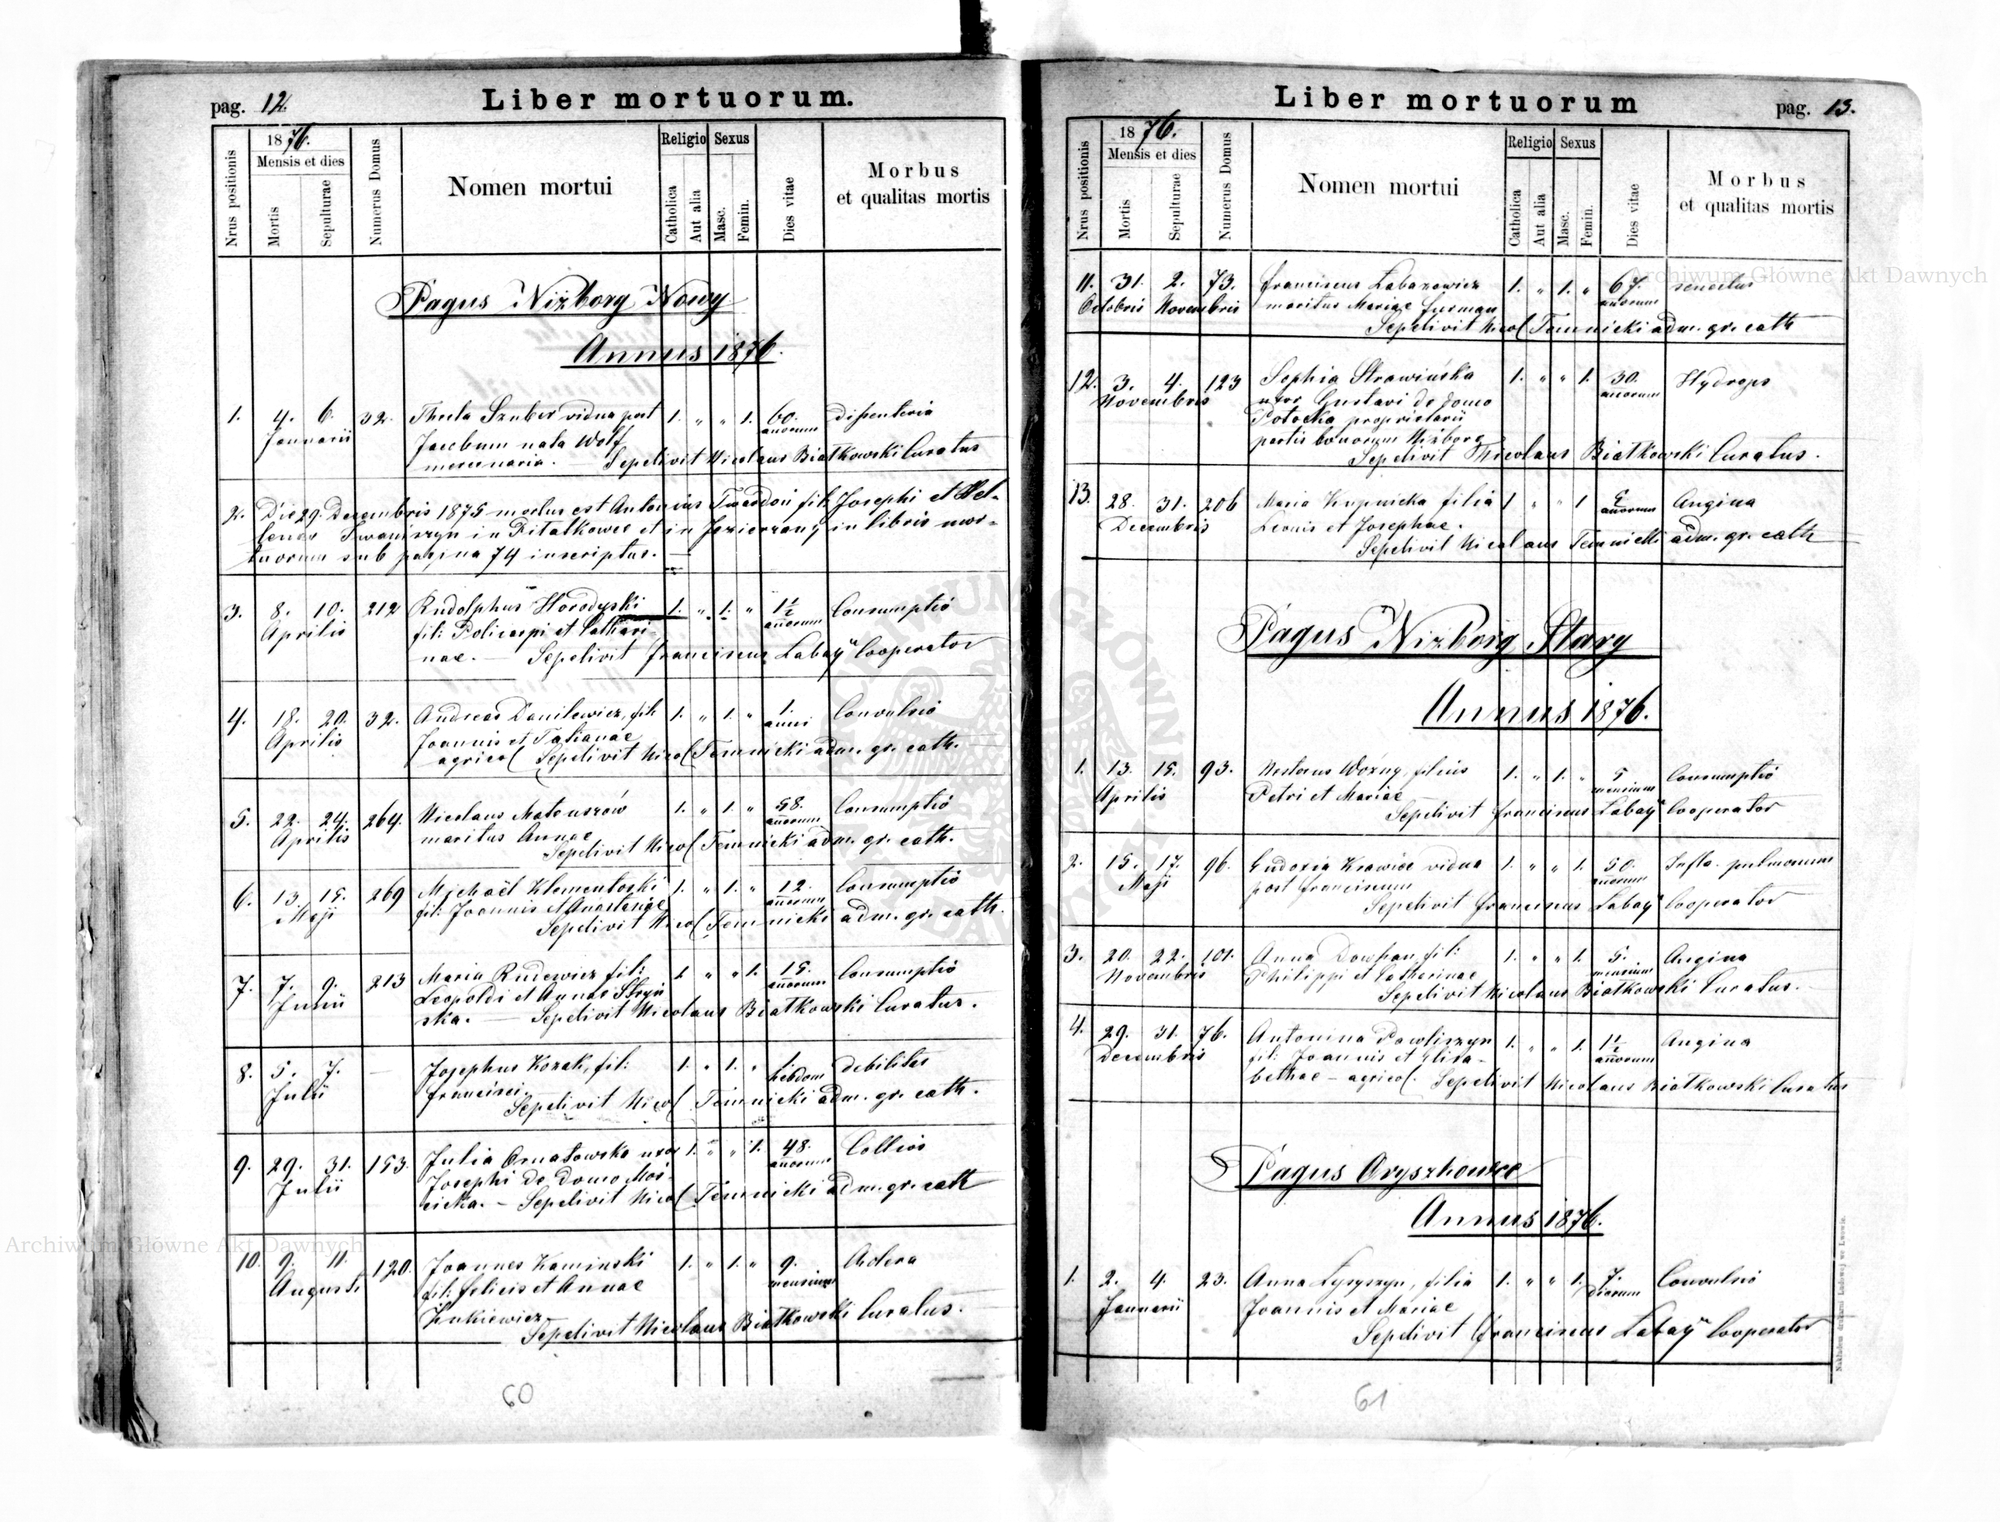 pag. 12.
Liber mortuorum.
Nrus positionis
1876.
Mensis et dies
Mortis
Sepulturae
Numerus Domus
Nomen mortui
Religio
Catholica
Aut alia
Sexus
Masc.
Femin.
Dies vitae
Morbus
et qualitas mortis
Pagus Niżborg Nowy
Annus 1876.
1. 4. 6. 32. Thecla Szuber vidua post 1. " " 1. 60. dissenteria
Januarii Jacobum nata Wolf anorum
mercenaria. — Sepelivit Nicolaus Białkowski Curatus
2. Die 29. Decembris 1875 mortus est Antonius Twardoń fil: Josephi et Hel-
lenae Iwaniszyn in Pilatkowce et in Jezierzany in libris mor-
tuorum sub pagina 74 inscriptus. —
3. 8. 10. 212 Rudolphus Horodyski 1. " 1. " 1 1/2 Consumptio
Aprilis fil: Policarpi et Cathari- anorum
nae. — Sepelivit Franciscus Labaÿ Cooperator
4. 18. 20. 32. Andreas Danilewicz, fil: 1. " 1. " 1. Convulsio
Aprilis Joannis et Tatianae anni
agricol Sepelivit Nicol Temnicki adm. gr. cath.
5. 22. 24. 264. Nicolaus Matouszów 1. " 1. " 58. Consumptio
Aprilis maritus Annae anorum
Sepelivit Nicol Temnicki adm. gr. cath.
6. 13. 15. 269 Michaël Klementoski 1. " 1. " 12. Consumptio
Maji fil: Joannis et Anastasiae anorum
Sepelivit Nicol Temnicki adm. gr. cath.
7. 7. 9. 213 Maria Rudewicz fil: 1. " " 1. 15. Consumptio
Junii Leopoldi et Annae Stryj anorum
ska. — Sepelivit Nicolaus Białkowski Curatus.
8. 5. 7. — Josephus Kozak, fil: 1. " 1. " 1. debilitas
Julii Francisci hebdom
Sepelivit Nicol Temnicki adm. gr. cath.
9. 29. 31. 153. Julia Ornatowska uxor 1. " " 1. 48. Collios
Julii Josephi de domo Moś- anorum
cicka. — Sepelivit Nicol Temnicki adm. gr. cath
10. 9. 11. 120. Joannes Kaminski 1. " 1. " 9.
Augusti fil: Felicis et Annae mensium
Sepelivit Nicolaus Białkowski Curatus.
60
Liber mortuorum
pag. 13.
Nrus positionis
1876.
Mensis et dies
Mortis
Sepulturae
Numerus Domus
Nomen mortui
Religio
Catholica
Aut alia
Sexus
Masc.
Femin.
Dies vitae
Morbus
et qualitas mortis
11. 31. 2. 73. Franciscus Labazowicz 1. " 1. " 67. senectus
Octobris Novembris maritus Mariae Furman anorum
Sepelivit Nicol Temnicki adm. gr. cath
12. 3. 4. 123 Sophia Strawińska 1. " " 1. 30. Hydrops
Novembris uxor Gustavi de domo anorum
Potocka proprietarii
partis bonorum Niżborg
Sepelivit Nicolaus Białkowski Curatus.
13. 28. 31. 206 Maria Krupnicka filia 1 " " 1 Angina
Decembris Leonis et Josephae. anorum
Sepelivit Nicolaus Temnicki adm. gr. cath
Pagus Niżborg Stary
Annus 1876.
1. 13. 15. 93. Nestorus Wozny, filius 1. " 1. " 5 Consumptio
Aprilis Petri et Mariae mensium
Sepelivit Franciscus Labaÿ Cooperator
2. 15. 17. 96. Eudoxia Krawiec vidua 1. " " 1. 50. Infla. pulmonum
Maji post Franciscum anorum
Sepelivit Franciscus Labaÿ Cooperator
3. 20. 22. 101. Anna Dowhan, fil: 1. " " 1. 5. Angina
Novembris Philippi et Catherinae mensium
Sepelivit Nicolaus Białkowski Curatus. —
4. 29. 31. 76. Antonina Pawliszyn 1. " " 1. 1 1/2 Angina
Decembris fil: Joannis et Elisa- anorum
bethae — agricol. Sepelivit Nicolaus Białkowski Curatus
Pagus Oryszkowce
Annus 1876.
1. 2. 4. 23. Anna Łysyszyn, filia 1. " " 1. 7. Convulsio
Januarii Joannis et Mariae dierum
Sepelivit Franciscus Labaÿ Cooperator
Nakładem drukarni Ludowej we Lwowie.
61
Archiwum Główne Akt Dawnych
Archiwum Główne Akt Dawnych
ARCHIWUM GŁÓWNE AKT DAWNYCH